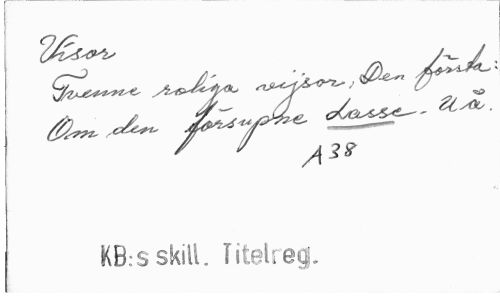 Visor
Tvenne roliga vijsor, Den första:
Om den försupne Lasse. U å.
A 38
KB:s skill. Titelreg.